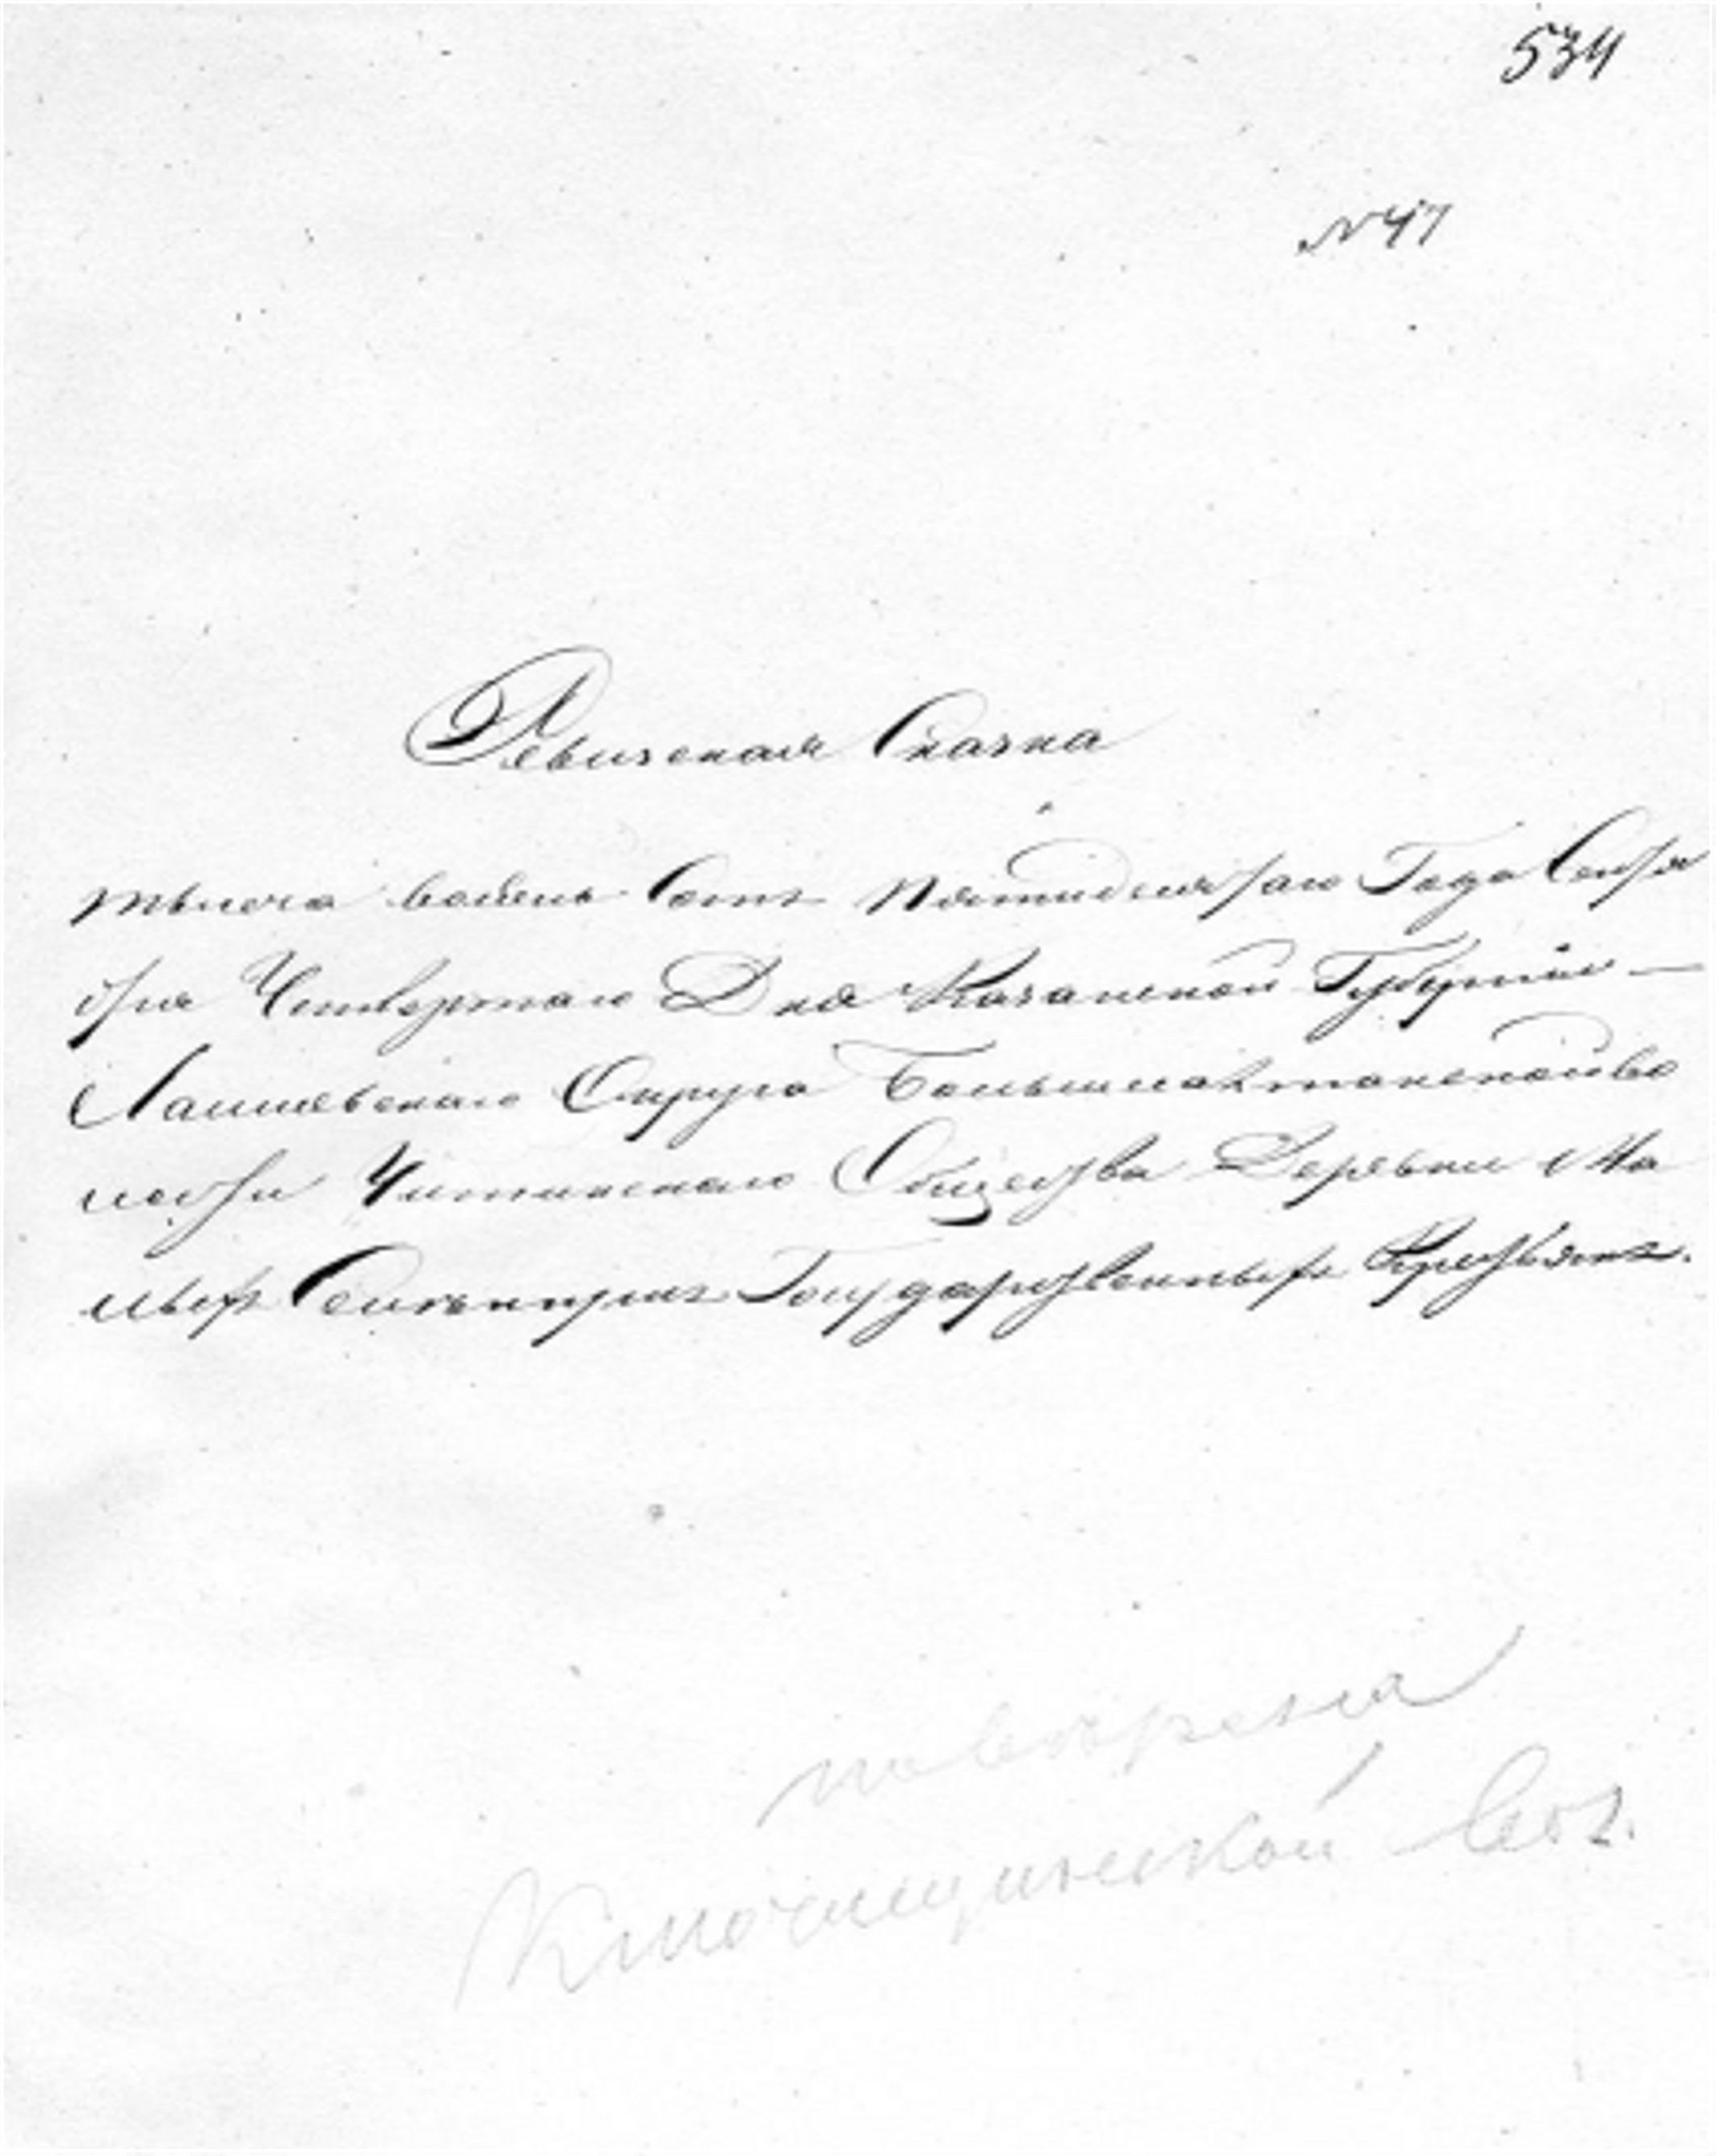 534
№ 47
Ревизская Сказка
тысяча восемь Сотъ Пятидесятаго Года Сентя
бря Четвертаго Дня Казанской Губернiи —
Лаишевскаго Округа Большемат во
лости Читинскаго Общества Деревни Ма
лыхъ Государственныхъ Крестьянъ.
Ключищинской вол.